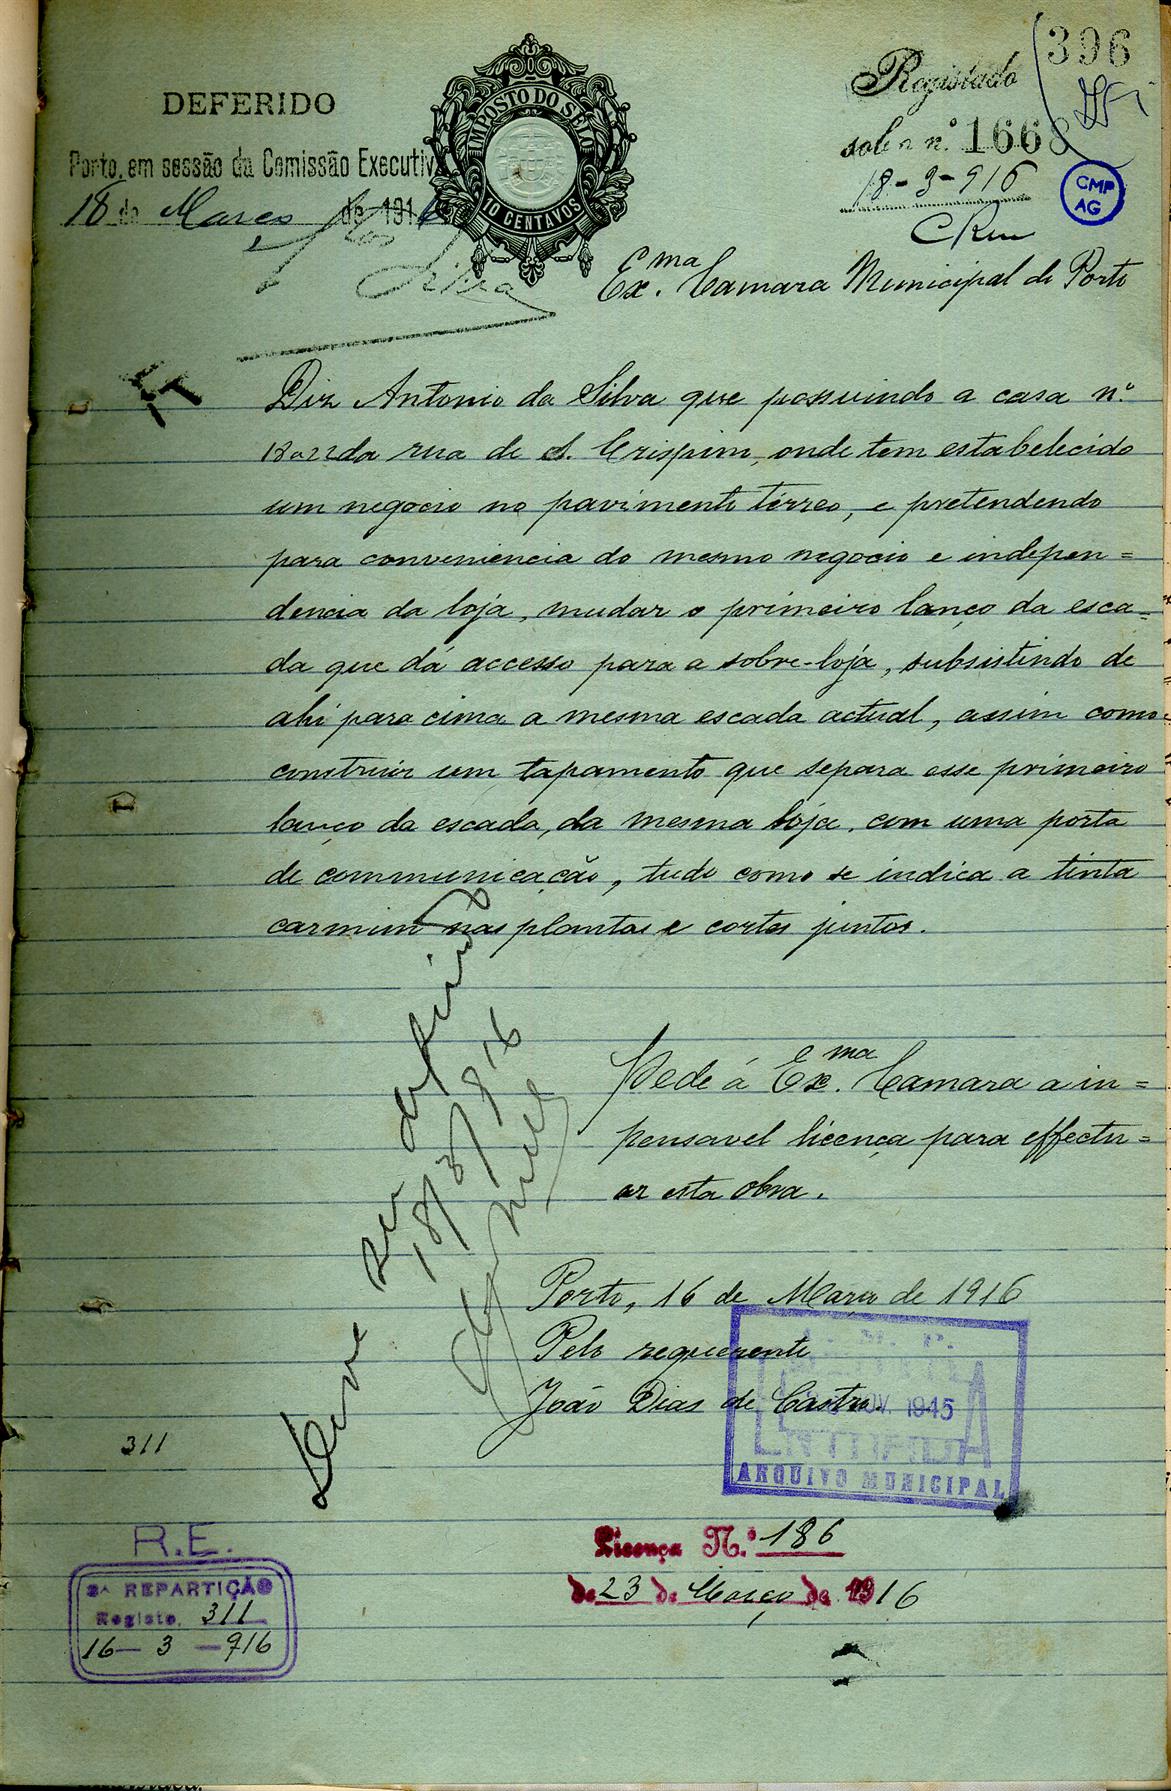 396
DEFERIDO
Registado
sob o n.º 1668
Porto, em sessão da Comissão Executiva
18 de Março de 1916
18-3-916
IMPOSTO DO SELO
10 CENTAVOS
CMP
AG
Ex.ma Camara Municipal do Porto
Diz Antonio da Silva que possuindo a casa n.º
da rua de S. Crispim, onde tem estabelecido
um negocio no pavimento térreo, e pretendendo
para conveniencia do mesmo negocio e indepen=
dencia da loja, mudar o primeiro lanço da esca-
da que dá accesso para a sobre-loja, subsistindo de
ahi para cima a mesma escada actual, assim como
construir um tapamento que separa esse primeiro
lanço da escada, da mesma loja, com uma porta
de communicação, tudo como se indica a tinta
carmim nas plantas e cortes juntos.
Deve ser deferido
18/3/916
Pede á Ex.ma Camara a in=
pensavel licença para effectu=
ar esta obra.
Porto, 16 de Março de 1916
Pelo requerente
João Dias de Castro.
NOV. 1945
ARQUIVO MUNICIPAL
311
R.E.
3ª REPARTIÇÃO
Registo 311
16-3-916
Licença N.º 186
de 23 de Março de 1916